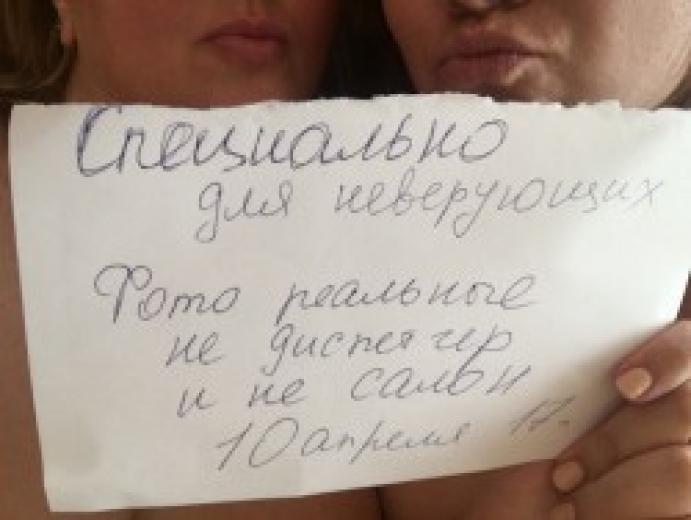 Специально
для неверующих
Фото реальные
не диспетчер
и не салон
10 апреля 17.